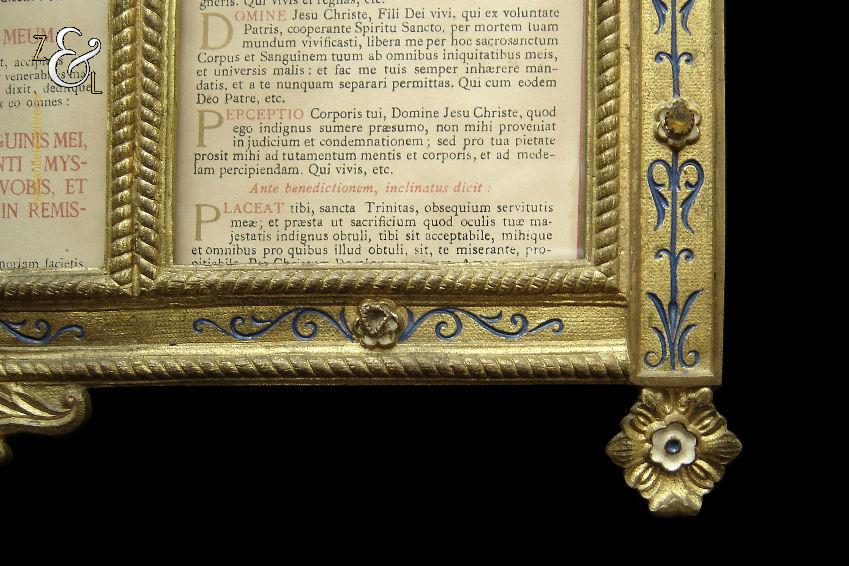 Z & L
MEUM
t, accipi
venerabiles ma
dixit, deditque
ex eo omnes :
GUINIS MEI,
NTI : MYS-
VOBIS, ET
IN REMIS-
moriam facietis.
gneris. Qui vivis et regnas, etc.
DOMINE Jesu Christe, Fili Dei vivi, qui ex voluntate
Patris, cooperante Spiritu Sancto, per mortem tuam
mundum vivificasti, libera me per hoc sacrosanctum
Corpus et Sanguinem tuum ab omnibus iniquitatibus meis,
et universis malis : et fac me tuis semper inhærere man-
datis, et a te nunquam separari permittas. Qui cum eodem
Deo Patre, etc.
PERCEPTIO Corporis tui, Domine Jesu Christe, quod
ego indignus sumere præsumo, non mihi proveniat
in judicium et condemnationem ; sed pro tua pietate
prosit mihi ad tutamentum mentis et corporis, et ad mede-
lam percipiendam. Qui vivis, etc.
Ante benedictionem, inclinatus dicit :
PLACEAT tibi, sancta Trinitas, obsequium servitutis
meæ ; et præsta ut sacrificium quod oculis tuæ ma-
jestatis indignus obtuli, tibi sit acceptabile, mihique
et omnibus pro quibus illud obtuli, sit, te miserante, pro-
pitiabile. Per Christum Dominum